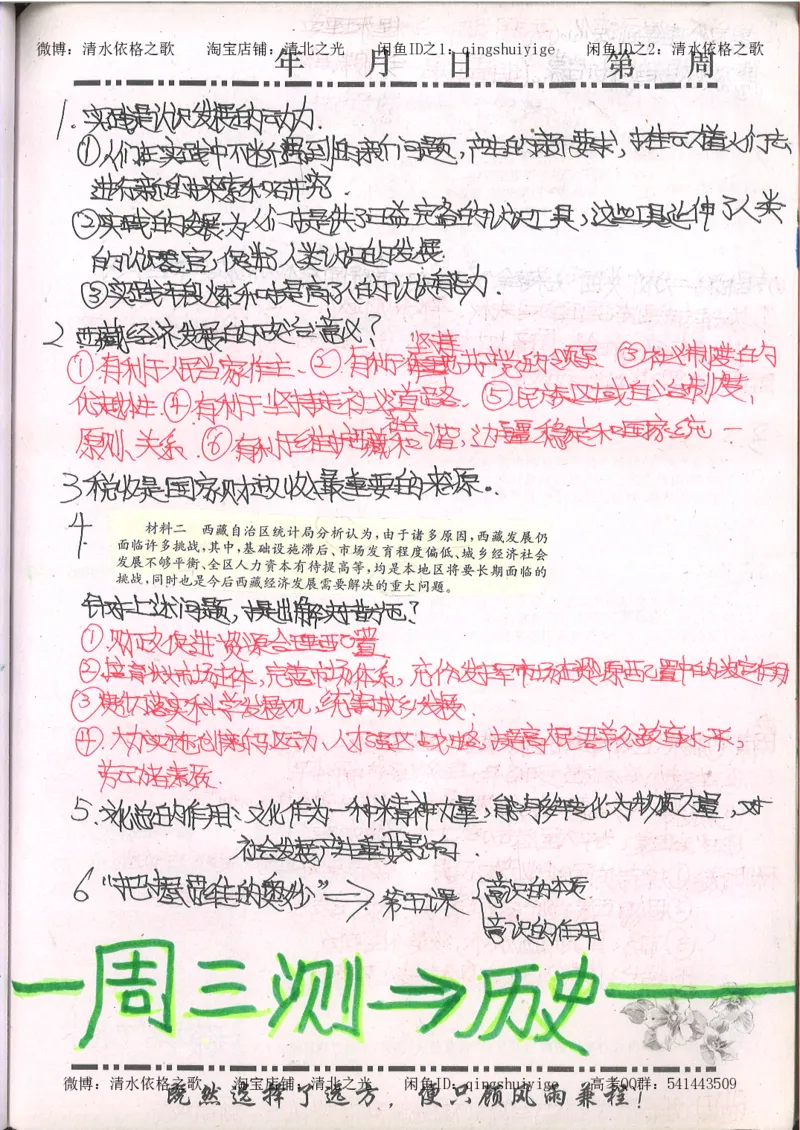 微博：清水依格之歌 淘宝店铺：清北之光 闲鱼ID之1：qingshuiyige 闲鱼ID之2：清水依格之歌
年 月 日 第 周
1. 实践是认识发展的动力.
①人们在实践中不断遇到的新问题，产生的新要求，推动着人们去
进行新的探索和研究.
②实践的发展为人们提供了日益完备的认识工具，这些工具延伸了人类
的认识器官，促进了人类认识的发展.
③实践锻炼和提高了人的认识能力.
2 西藏经济发展的政治意义？
坚持
①有利于人民当家作主. ②有利于共产党的领导 ③社义制度的
优越性. ④有利于坚持走社义道路. ⑤民族区域自治制度，
原则、关系. ⑥有利于维护西藏和谐，边疆稳定和国家统一
3 税收是国家财政收入最重要的来源.
4.
材料二 西藏自治区统计局分析认为，由于诸多原因，西藏发展仍
面临许多挑战，其中，基础设施滞后、市场发育程度偏低、城乡经济社会
发展不够平衡、全区人力资本有待提高等，均是本地区将要长期面临的
挑战，同时也是今后西藏经济发展需要解决的重大问题。
针对上述问题，提出解决措施？
①财政促进资源合理配置
②培育市场主体，完善市场体系，充分发挥市场在资源配置中的决定作用
③贯彻落实科学发展观，统筹城乡发展.
④.大力实施创新驱动、人才强区战略，提高人民思想教育水平，
劳动者素质.
5. 文化的作用：文化作为一种精神力量，能够转化为物质力量，对
社会发展产生重要影响.
6 “把握思维的奥妙”⇒第五课 { 意识的本质
意识的作用
周三测→历史
微博：清水依格之歌 淘宝店铺：清北之光 闲鱼ID：qingshuiyige 高考QQ群：541443509
既然选择了远方，便只顾风雨兼程！